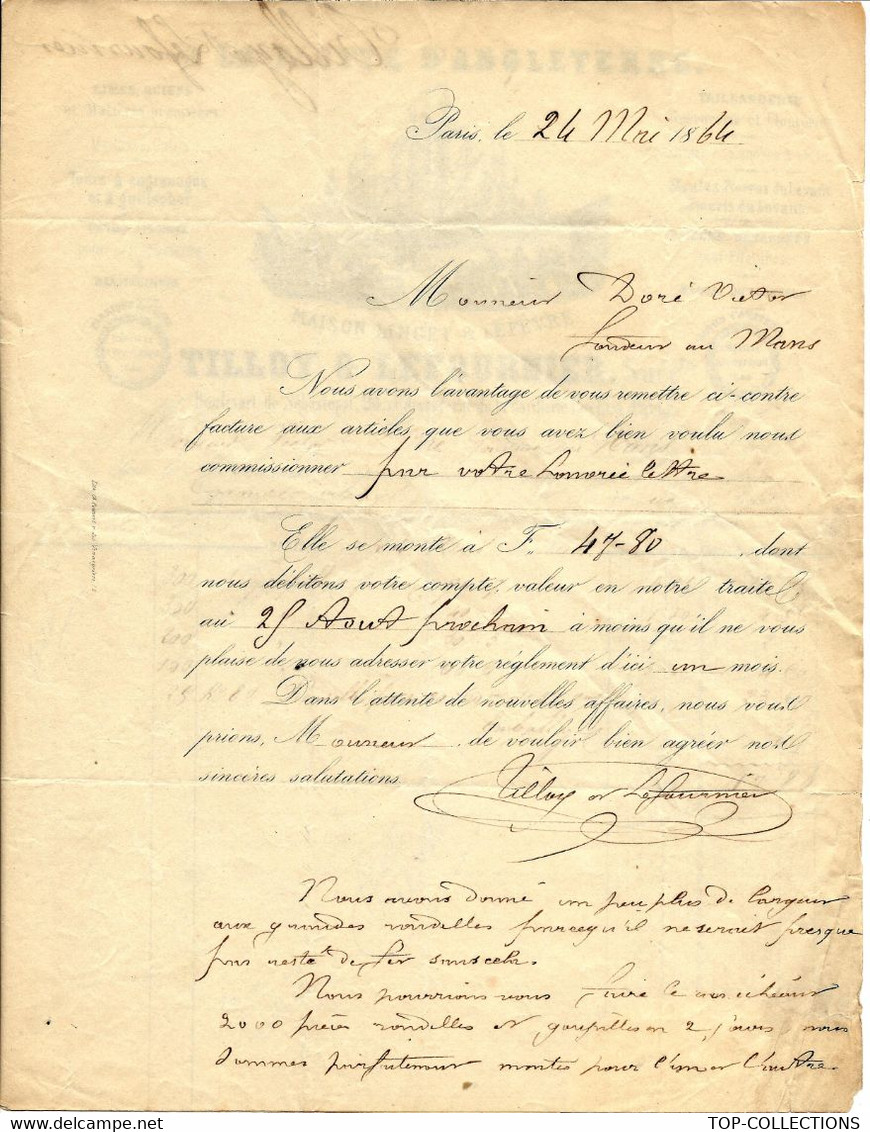 Paris, le 24 Mai 1864
Monsieur Doré Victor
fondeur au Mans
Nous avons l'avantage de vous remettre ci-contre
facture aux articles que vous avez bien voulu nous
commissionner par votre honorée lettre
Elle se monte à F. 47-80, dont
nous débitons votre compte, valeur en notre traite
au 25 Aout prochain à moins qu'il ne vous
plaise de nous adresser votre réglement d'ici un mois.
Dans l'attente de nouvelles affaires, nous vous
prions, Monsieur, de vouloir bien agréer nos
sincères salutations.
Tilloy et Lefournier
Nous avons donné un peu plus de largeur
aux grandes rondelles parcequ'il ne serait presque
pas resté de fer sans cela.
Nous pourrions vous faire le cas échéant
2000 pièces rondelles et goupilles en 2 jours, nous
sommes parfaitement montés pour l'un et l'autre.
MAISON LEFEVRE
TILLOY & LEFOURNIER
D'ANGLETERRE
TOP-COLLECTIONS